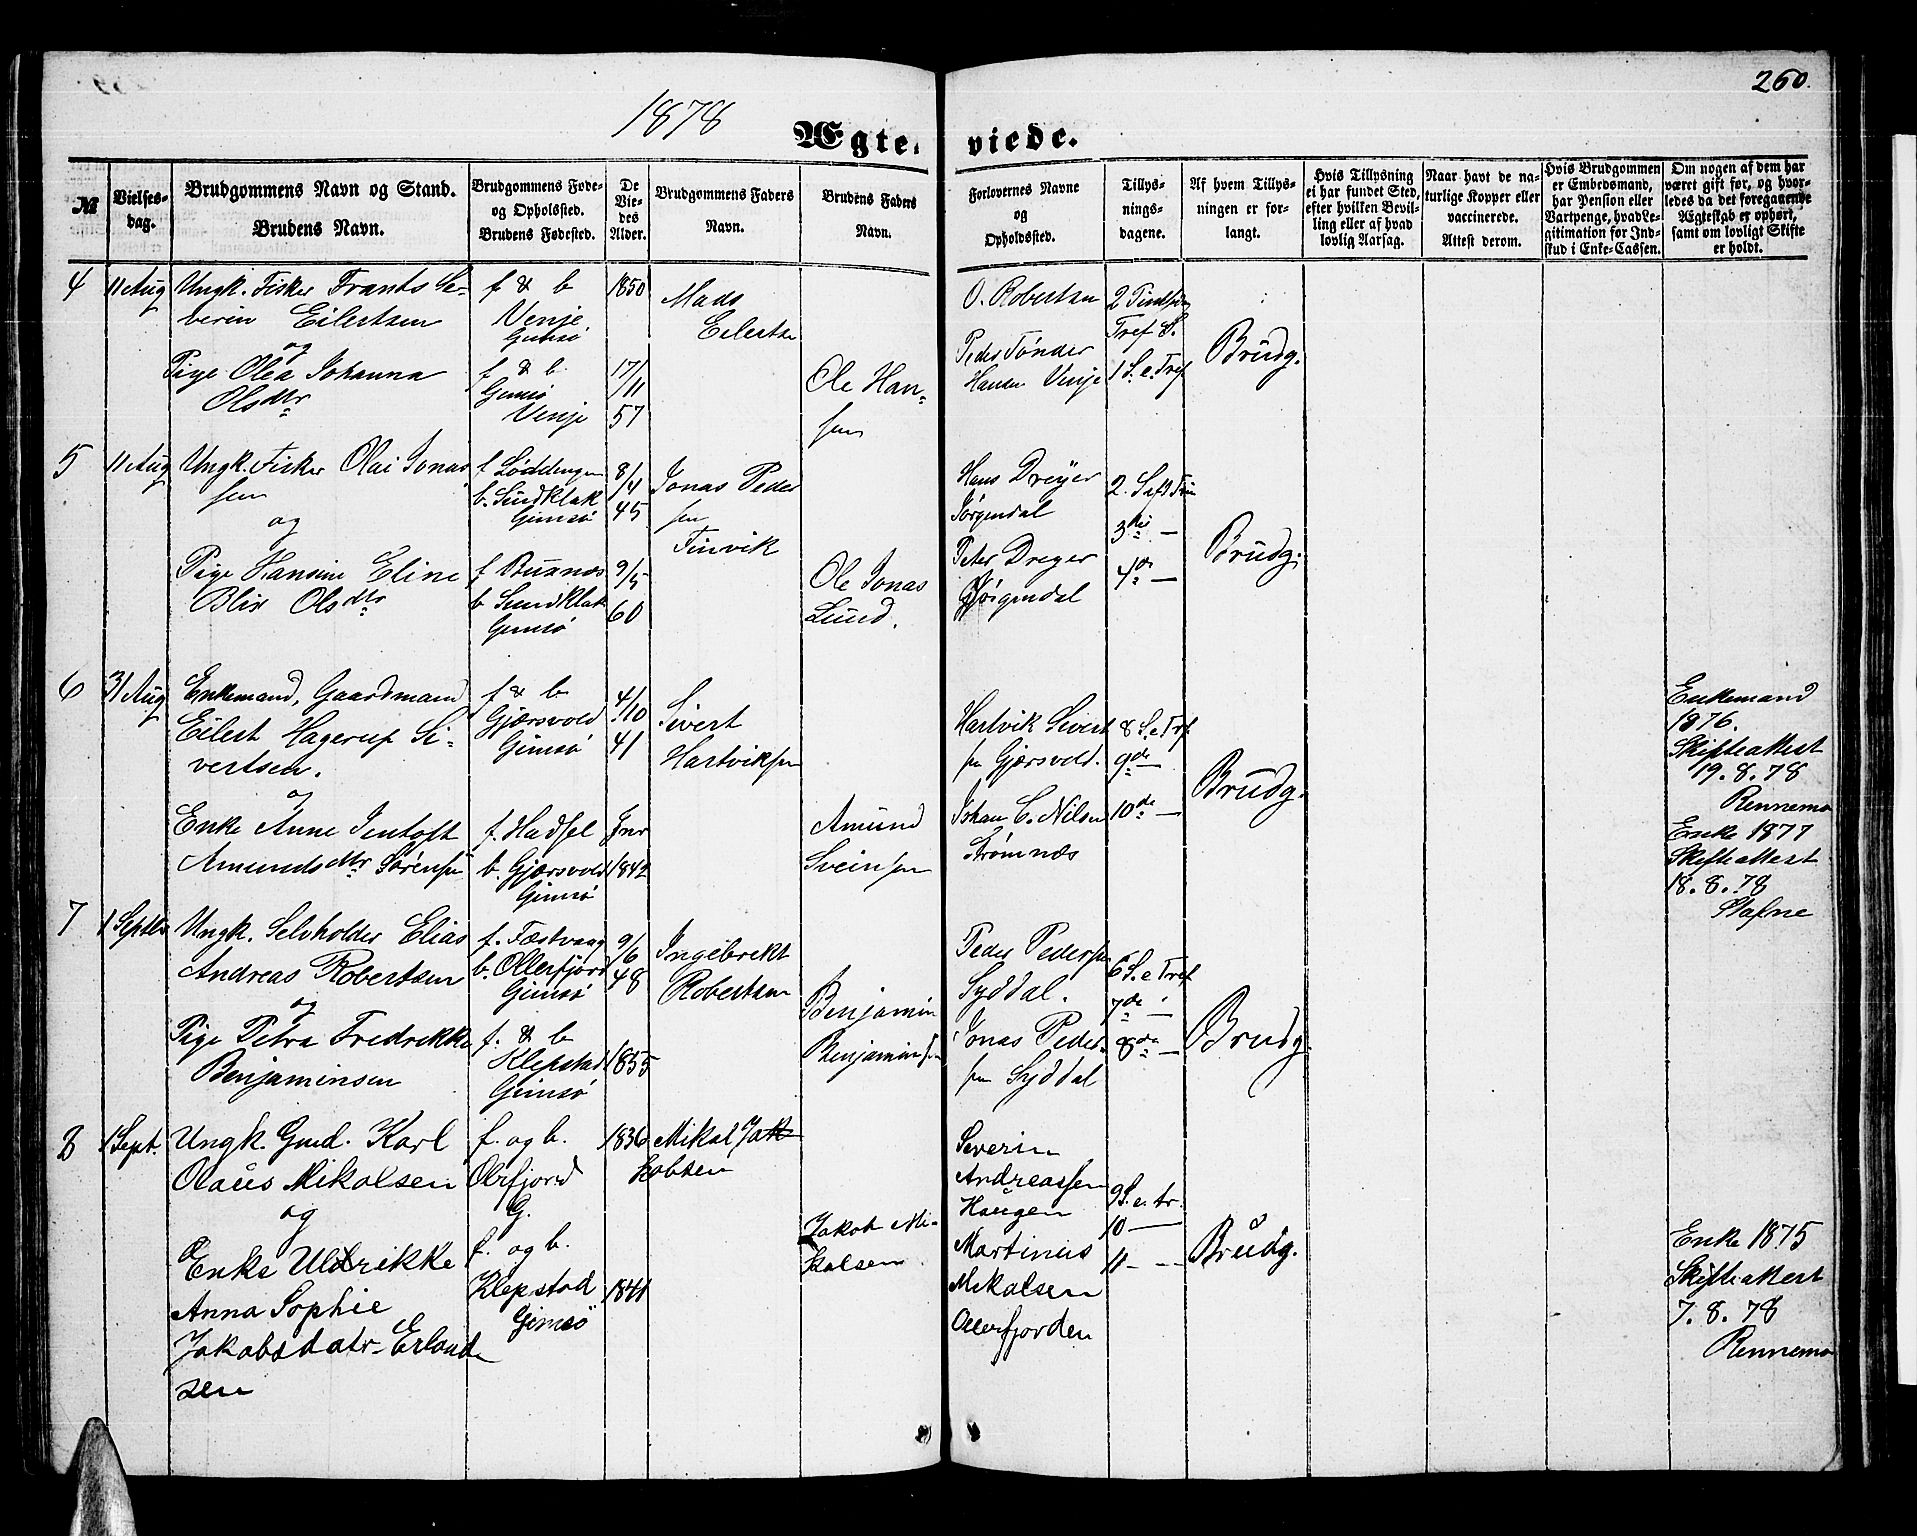 260.
1878
Ægte- viede.
№
Vielses-
dag.
Brudgommens Navn og Stand.
Brudens Navn.
Brudgommens Føde-
og Opholsfted.
Brudens Fødested.
De
Vie-
des
Alder.
Brudgommens Faders
Navn.
Brudens Faders
Navn.
Forlovernes Navne
og
Opholdssted.
Tillys-
nings-
dagene.
Af hvem Tillys-
ningen er for-
langt.
Hvis Tillysning
ei har fundet Sted,
efter hvilken Bevil-
ling eller af hvad
lovlig Aarsag.
Naar havt de na-
turlige Kopper eller
vaccinerede.
Attest derom.
Hvis Brudgommen
er Embedsmand,
har Pension eller
Vartpenge, hvad Le-
gitimation for Ind-
skud i Enke-Cassen.
Om nogen af dem har
været gift før, og hvor-
ledes da det foregaaende
Ægteskab er ophørt,
samt om lovligt Skifte
er holdt.
4
11 Aug
Ungk. Fisker Frants Se-
berin Eilertsen
og
Pige Olea Johanna
Olsdtr
f & b
Venje
Gimsø
f & b.
Gimsø
Venje
1850
17/11
57
Mads
Eilertsen
Ole Han-
sen
O. Robertsen
Peder Tønder
Hansen Venje
Tref S.
1 S. e. Tref
Brudg.
5
11 Aug
Ungk. Fisker Olai Jonas
sen
og
Pige Hansine Eline
Blix Olsdtr
f Løddingen
b. Sundklak
Gimsø
f Buxnæs
b Sundklak
Gimsø
8/4
45
9/5
60
Jonas Peder
sen
Finvik
Ole Jonas
Lund.
Hans Dreyer
Jørgendal
Peter Dreyer
Jørgendal
3die —
4de —
Brudg.
6
31 Aug
Enkemand, Gaardmand
Eilert Hagerup Si-
vertsen.
og
Enke Anne Jentoft
Amundsdtr Sørensen
f & b
Gjærsvold
Gimsø
f. Hadsel
b. Gjærsvold
Gimsø
4/10
41
1842
Sivert
Hartviksen
Amund
Sveinsen
Hartvik Sivert
sen Gjærsvold.
Johan C. Nilsen
Strømnæs
8 S. e Trf
9de —
10de —
Brudg.
Enkemand
1876.
Skifteattest
19. 8. 78
Rennemo
Enke 1877
Skifteattest
18. 8. 78
Stafne
7
1 Septbr
Ungk. Selvholder Elias
Andreas Robertsen
og
Pige Petra Fredrikke
Benjaminsen
f. Festvaag
b. Ollerfjord
Gimsø
f. & b
Klepstad
Gimsø
9/6
48
1855
Ingebrekt
Robertsen
Benjamin
Benjaminsen
Peder Pedersen
Syddal.
Jonas Peder-
sen Syddal
6 S. e Tref
7de —
8de —
Brudg.
8
1 Sept.
Ungk. Gmd. Karl
Olaüs Mikalsen
og
Enke Uldrikke
Anna Sophie
Jakobsdatr Erland
sen
f. og b.
Olrfjord
G.
f. og b.
Klepstad
Gimsø
1836
1841
Mikal Jak
kobsen
Jakob Mi-
kalsen
Severin
Andreassen
Haugen
Martinus
Mikalsen
Ollerfjorden
9 S. e. tr.
10 —
11 — —
Brudg.
Enke 1875
Skifteattest
7. 8. 78
Rennemo